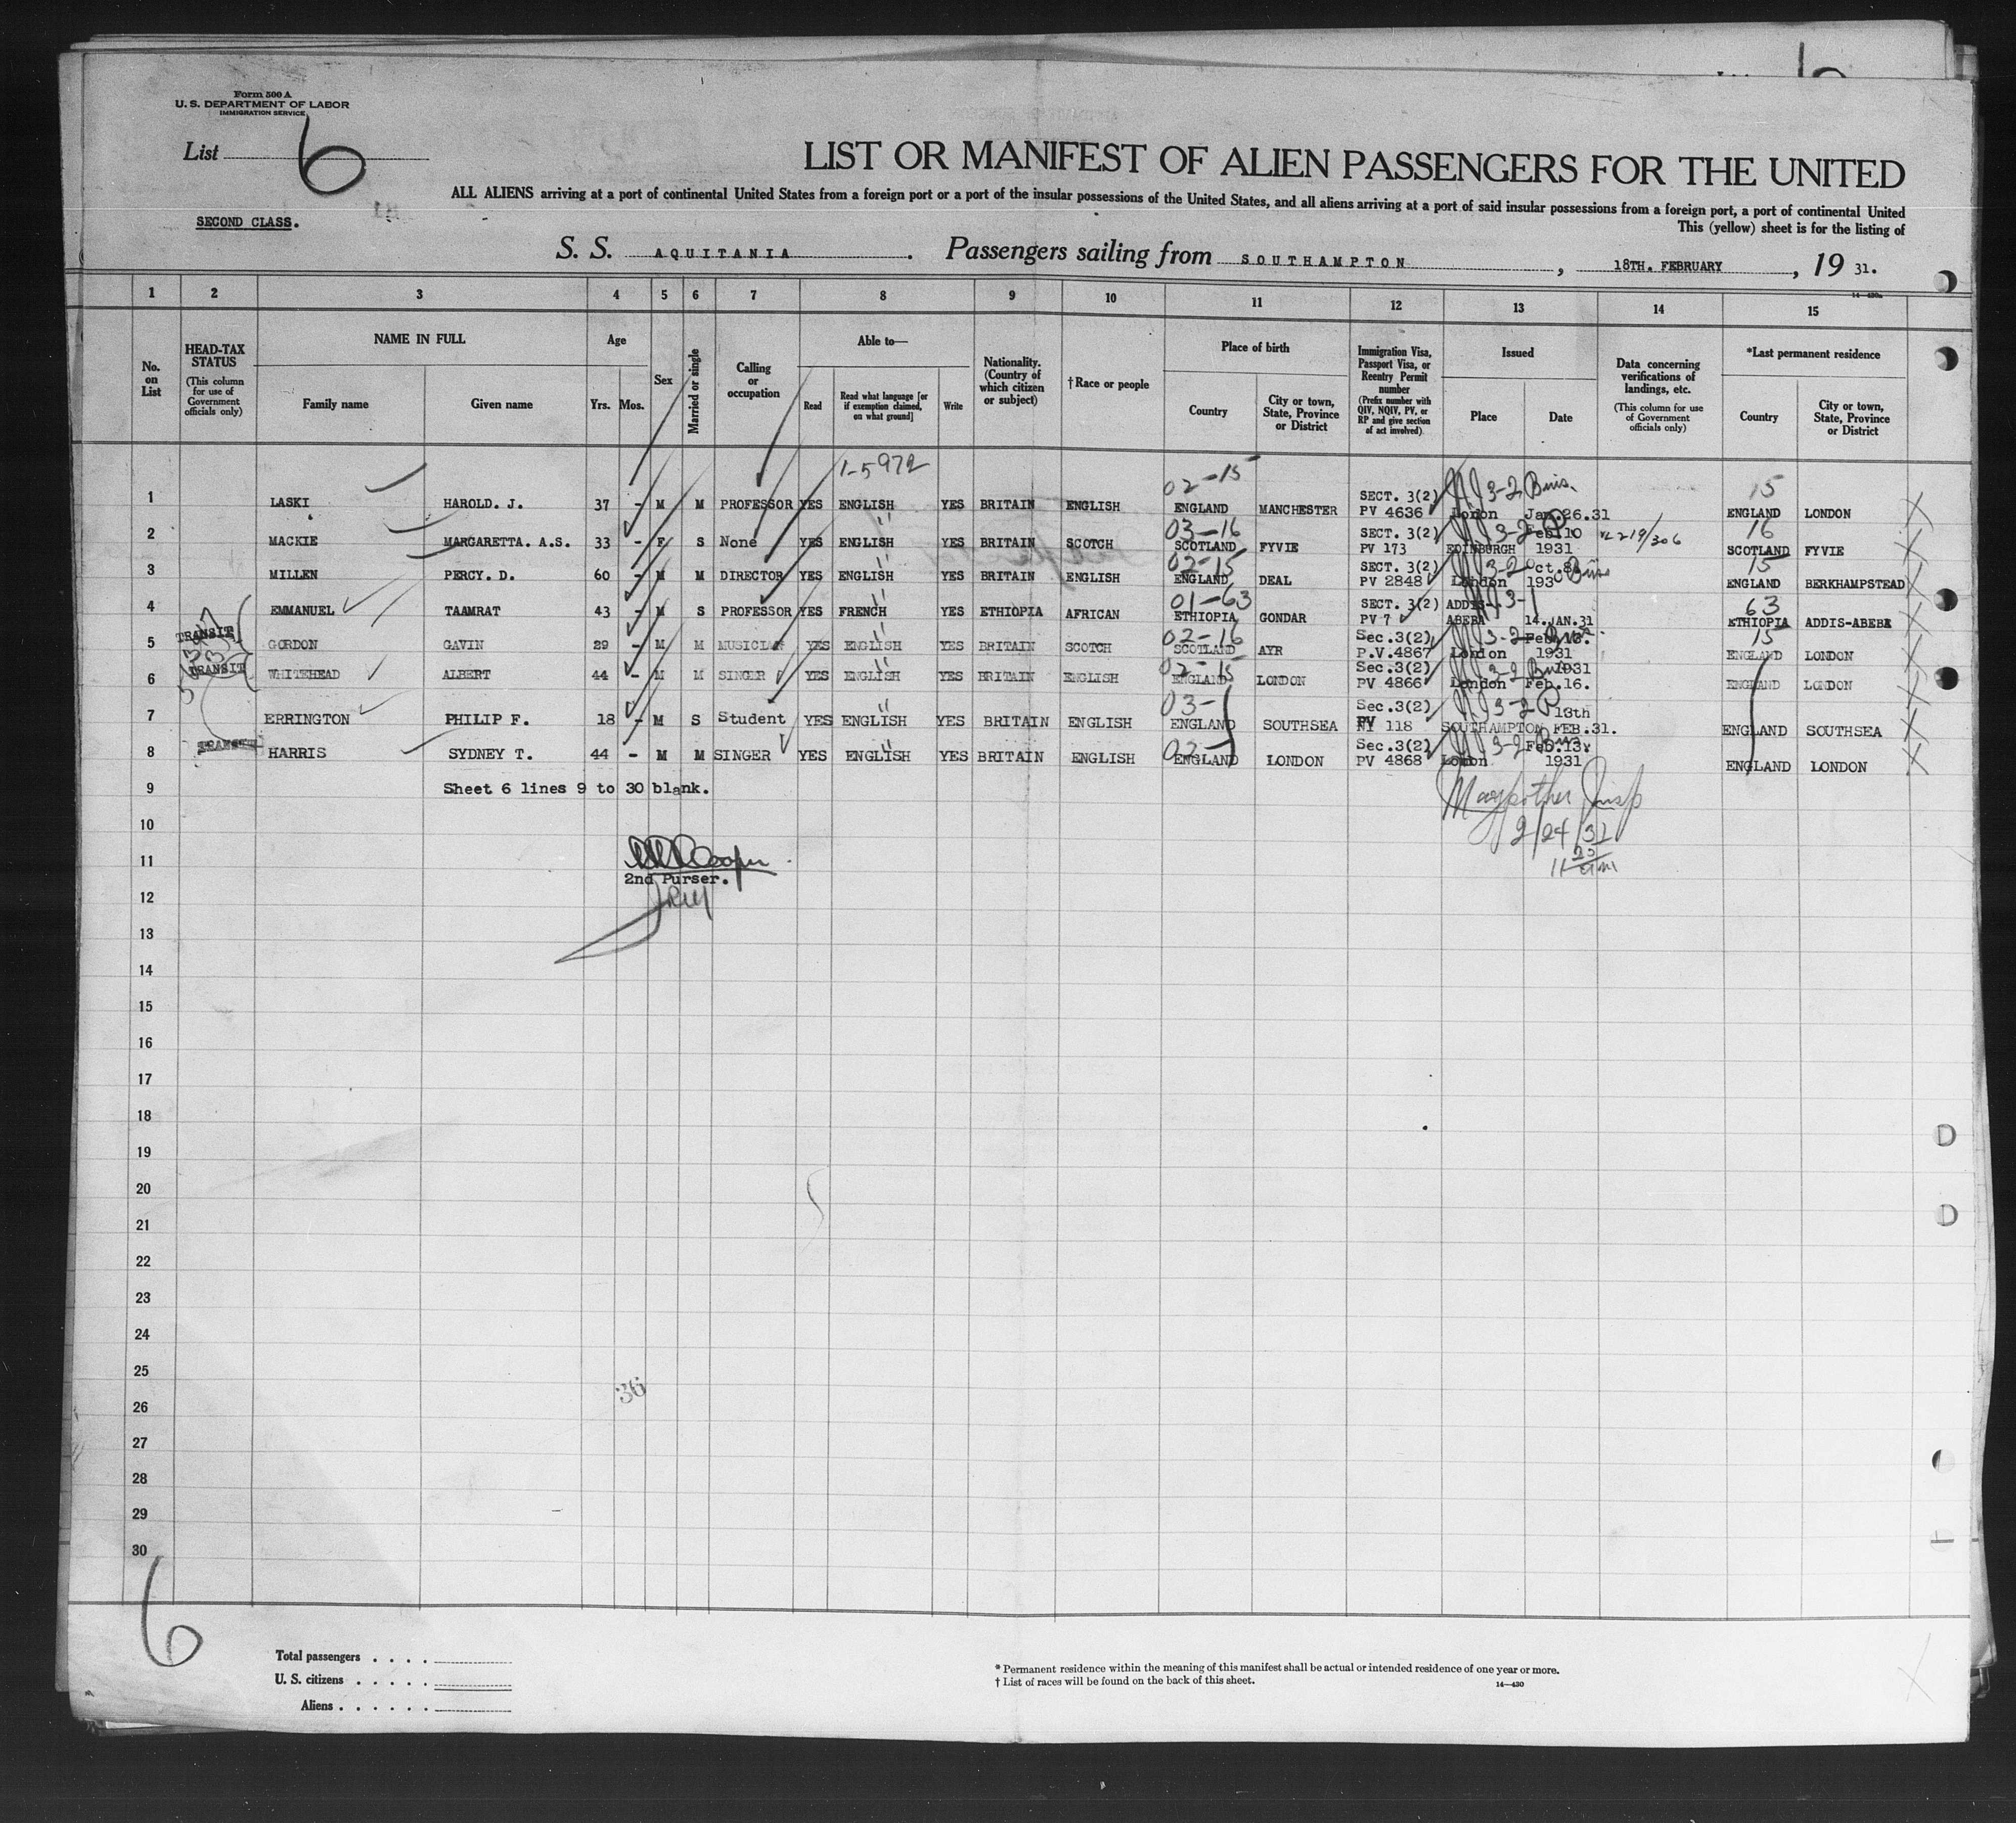 Form 500 A
U. S. DEPARTMENT OF LABOR
IMMIGRATION SERVICE
List 6
LIST OR MANIFEST OF ALIEN PASSENGERS FOR THE UNITED
ALL ALIENS arriving at a port of continental United States from a foreign port or a port of the insular possessions of the United States, and all aliens arriving at a port of said insular possessions from a foreign port, a port of continental United
This (yellow) sheet is for the listing of
SECOND CLASS.
S. S. AQUITANIA. Passengers sailing from SOUTHAMPTON, 18TH. FEBRUARY, 19 31.
1 2 3 4 5 6 7 8 9 10 11 12 13 14 15
No. on List
HEAD-TAX STATUS (This column for use of Government officials only)
NAME IN FULL
Family name Given name
Age
Yrs. Mos.
Sex
Married or single
Calling or occupation
Able to—
Read Read what language [or if exemption claimed, on what ground] Write
Nationality. (Country of which citizen or subject)
†Race or people
Place of birth
Country City or town, State, Province or District
Immigration Visa, Passport Visa, or Reentry Permit number (Prefix number with QIV, NQIV, PV, or RP and give section of act involved)
Issued
Place Date
Data concerning verifications of landings, etc. (This column for use of Government officials only)
*Last permanent residence
Country City or town, State, Province or District
1-5972 02-15 3-2 Bus. 15
1 LASKI HAROLD. J. 37 - M M PROFESSOR YES ENGLISH YES BRITAIN ENGLISH ENGLAND MANCHESTER SECT. 3(2) PV 4636 London Jan.26.31 ENGLAND LONDON
03-16 3-2 P 16
2 MACKIE MARGARETTA. A.S. 33 - F S None YES ENGLISH YES BRITAIN SCOTCH SCOTLAND FYVIE SECT. 3(2) PV 173 EDINBURGH Feb.10 1931 VL 219/306 SCOTLAND FYVIE
02-15 3-2 Bus 15
3 MILLEN PERCY. D. 60 - M M DIRECTOR YES ENGLISH YES BRITAIN ENGLISH ENGLAND DEAL SECT. 3(2) PV 2848 London 193 ENGLAND BERKHAMPSTEAD
01-63 3-1 63
4 EMMANUEL TAAMRAT 43 - M S PROFESSOR YES FRENCH YES ETHIOPIA AFRICAN ETHIOPIA GONDAR SECT. 3(2) PV 7 ADDIS ABEBA 14.JAN.31 ETHIOPIA ADDIS-ABEBA
02-16 3-2 15
5 TRANSIT GORDON GAVIN 29 - M M MUSICIAN YES ENGLISH YES BRITAIN SCOTCH SCOTLAND AYR Sec.3(2) P.V.4867 London 1931 ENGLAND LONDON
02-15 3-2 Bus
6 TRANSIT WHITEHEAD ALBERT 44 - M M SINGER YES ENGLISH YES BRITAIN ENGLISH ENGLAND LONDON Sec.3(2) PV 4866 London 1931 Feb.16. ENGLAND LONDON
03- 3-2 P
7 ERRINGTON PHILIP F. 18 - M S Student YES ENGLISH YES BRITAIN ENGLISH ENGLAND SOUTHSEA Sec.3(2) PV 118 SOUTHAMPTON 13th FEB.31. ENGLAND SOUTHSEA
02- 3-2 Bus
8 TRANSIT HARRIS SYDNEY T. 44 - M M SINGER YES ENGLISH YES BRITAIN ENGLISH ENGLAND LONDON Sec.3(2) PV 4868 London Feb.13. 1931 ENGLAND LONDON
9 Sheet 6 lines 9 to 30 blank.
2/24/31
10
11
2nd Purser.
12
13
14
15
16
17
18
19
20
21
22
23
24
25
36
26
27
28
29
30
6
Total passengers . . . .
U. S. citizens . . . . .
Aliens . . . . . .
* Permanent residence within the meaning of this manifest shall be actual or intended residence of one year or more.
† List of races will be found on the back of this sheet.
14—430